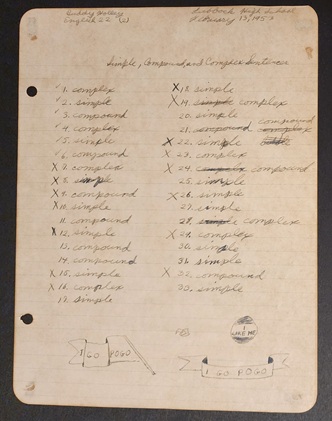 Buddy Holley
English 22 (2)
Lubbock High School
February 13, 1953
Simple, Compound, and Complex Sentences
1. complex
2. simple
3. compound
4. complex
5. simple
6. compound
X 7. complex
X 8. simple
X 9. compound
X 10. simple
11. compound
X 12. simple
13. compound
14. compound
X 15. simple
X 16. complex
17. simple
X 18. simple
X 19. simple complex
20. simple
21. compound complex compound
X 22. simple
X 23. complex
X 24. complex compound
25. simple
X 26. simple
27. simple
28. simple complex
X 29. complex
30. simple
31. simple
X 32. compound
33. simple
I GO POGO
I LIKE ME
I GO POGO